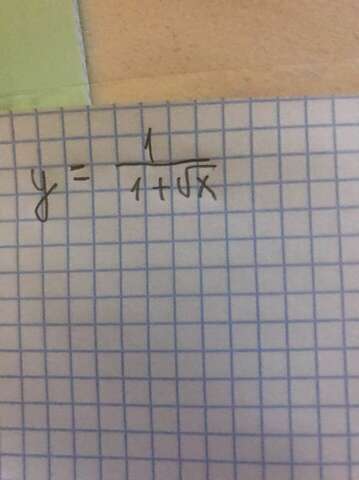 y = 1/(1+√x)